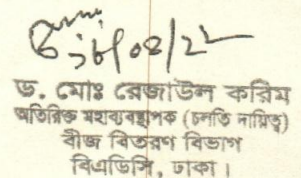 ড. মোঃ রেজাউল করিম
অতিরিক্ত মহাব্যবস্থাপক (চলতি দায়িত্ব)
বীজ বিতরণ বিভাগ
বিএডিসি, ঢাকা।